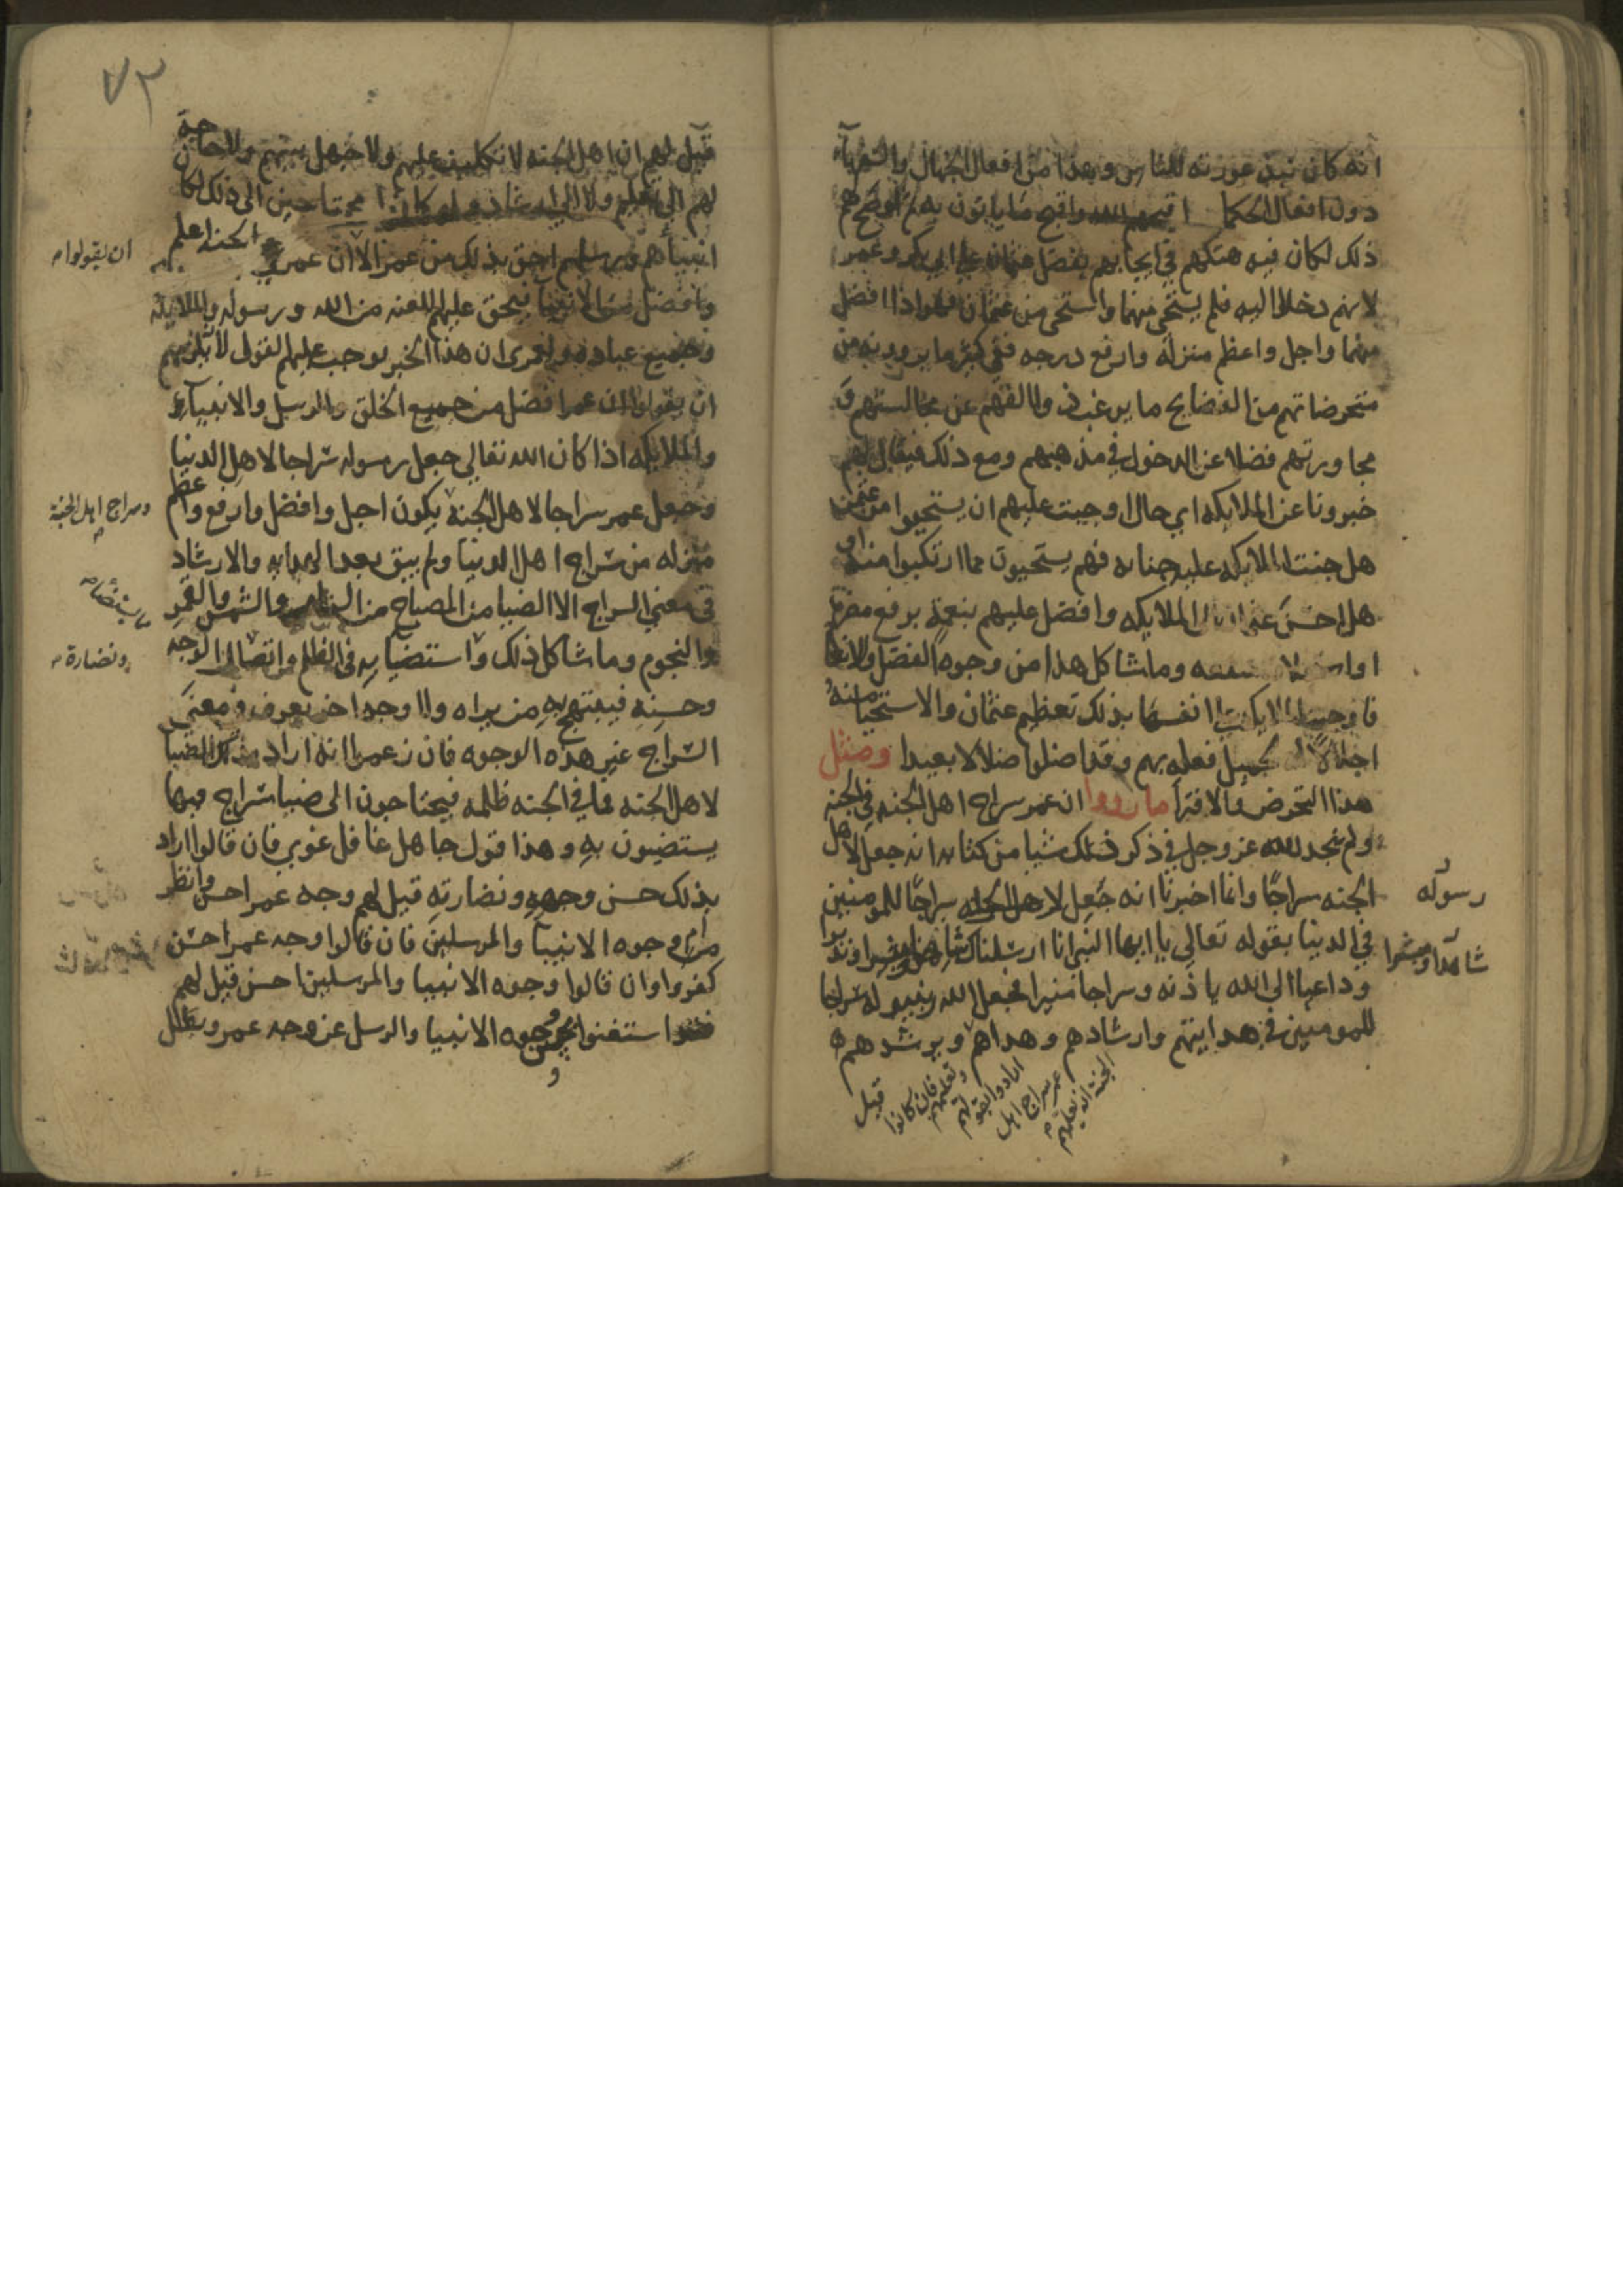 انه كان يبدي عورته للناس وهذا من افعال الجهال والسفهاء
دون افعال الحكما واقبح ما ياتون به ثم لو صح لهم
ذلك لكان فيه هتكهم في ايجابهم بفضل عثمان على ابي بكر وعمر
لانهم دخلوا اليه فلم يستحي منهما واستحي من عثمان فهو اذا افضل
منهما واجل واعظم منزله وارفع درجه ففي كثير ما يروونه من
متخرصاتهم من الفضايح ما يرغب ذوا الفهم عن مجالستهم و
مجاورتهم فضلا عن الدخول في مذهبهم ومع ذلك فيقال لهم
خبرونا عن الملايكه اي حال اوجبت عليهم ان يستحيوا من عثمن
هل جنت الملايكه عليه جنايه فهم يستحيون مما ارتكبوا منه او
هل احسن عثمان الى الملايكه وافضل عليهم بنعمة برفع مضرة
او وما شاكل هذا من وجوه الفضل والانعام
فاوجبت الملايكة انفسها بذلك تعظيم عثمان والاستحيا منه
اجلالا لجميل فعله بهم وقد ضلوا ضلالا بعيدا ومثل
هذا التخرص والافترا ما رووا ان عمر سراج اهل الجنه في الجنه
ولم نجد لله عز وجل في ذكر ذلك شيا من كتابه انه جعل لاهل
الجنه سراجا وانما اخبرنا انه جعل سراجا للمومنين
رسوله
في الدنيا بقوله تعالى يا ايها النبي انا ارسلناك ونذيرا
شاهدا ومبشرا
وداعيا الى الله باذنه وسراجا منيرا فجعل الله رسوله سراجا
للمومنين في هدايتهم وارشادهم وهداهم ويرشدهم
فان كانوا ارادوا بقولهم عمر سراج اهل الجنة انه يعلمهم
قيل
٧٣
قيل لهم ان اهل الجنه لا تكليف عليهم ولا جهل بينهم ولا حاجة
لهم الى تعليم ولا الى ارشاد ولو كانوا محتاجين الى ذلك لكان
انبياهم ورسلهم احق بذلك من عمر الا ان عمر في الجنه اعلم
ان يقولوا
وافضل من الانبيا فيحق عليهم اللعنه من الله ورسوله والملايكه
وجميع عباده ولعمرى ان هذا الخبر يوجب عليهم القول لا
ان يقولوا ان عمرا افضل من جميع الخلق والرسل والانبياء
والملايكه اذا كان الله تعالى جعل رسوله سراجا لاهل الدنيا
وجعل عمر سراجا لاهل الجنه يكون اجل وافضل وارفع واعظم
وسراج اهل الجنة
منزله من سراج اهل الدنيا ولم يبق بعد الهدايه والارشاد
في معنى السراج الا الضيا من المصباح من والشمس والقمر
والنجوم وما شاكل ذلك واستضيا به في الظلم الوجه
ونضارة
وحسنه فيبتهج به من يراه ولا وجه اخر يعرف في معنى
السراج غير هذه الوجوه فان زعموا انه اراد بذلك الضيا
لاهل الجنه فما في الجنه ظلمه فيحتاجون الى ضيا سراج فيها
يستضيون به وهذا قول جاهل غافل غوي فان قالوا اراد
بذلك حسن وجهه ونضارته قيل لهم وجه عمر احسن وانظر
ام وجوه الانبيا والمرسلين فان قالوا وجه عمر احسن
كفروا وان قالوا وجوه الانبيا والمرسلين احسن قيل لهم
استغنوا بوجوه الانبيا والرسل عن وجه عمر وبطل